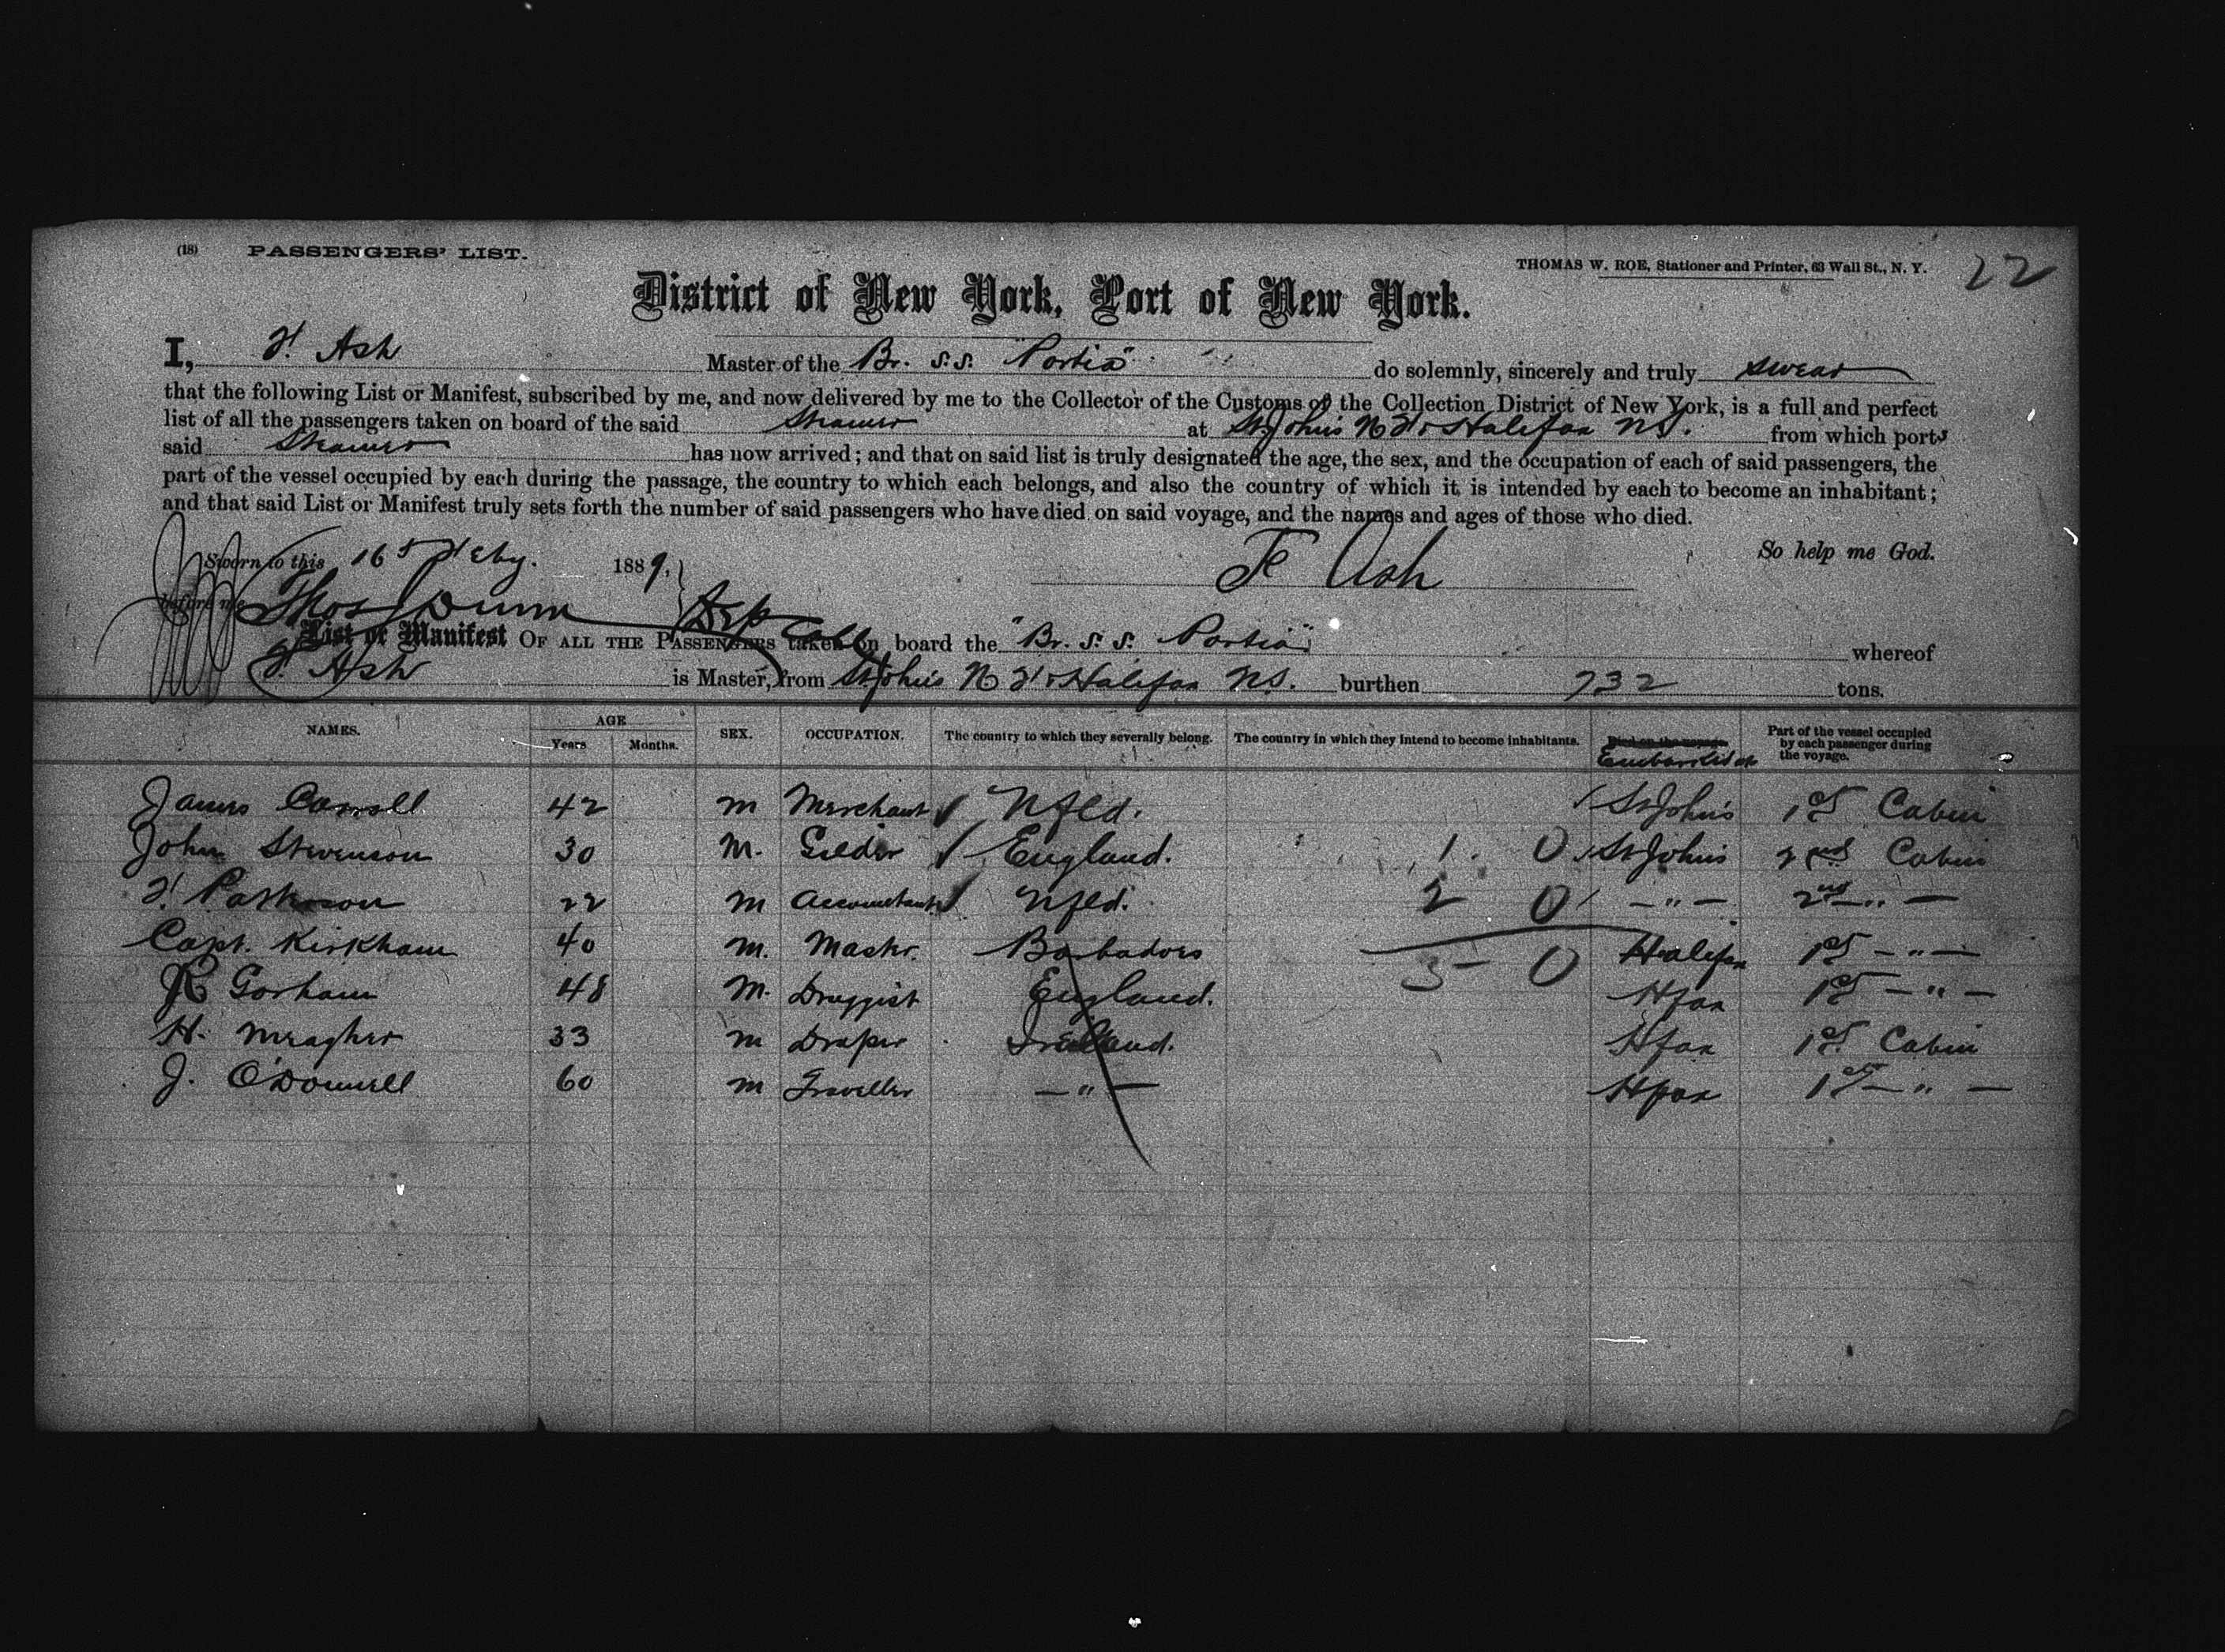 (18) PASSENGERS' LIST.
THOMAS W. ROE, Stationer and Printer, 63 Wall St., N. Y. 22
District of New York, Port of New York.
I, F. Ash Master of the Br. S.S. "Portia" do solemnly, sincerely and truly swear
that the following List or Manifest, subscribed by me, and now delivered by me to the Collector of the Customs of the Collection District of New York, is a full and perfect
list of all the passengers taken on board of the said Steamer at St. Johns N F & Halifax N.S. from which ports
said Steamer has now arrived; and that on said list is truly designated the age, the sex, and the occupation of each of said passengers, the
part of the vessel occupied by each during the passage, the country to which each belongs, and also the country of which it is intended by each to become an inhabitant;
and that said List or Manifest truly sets forth the number of said passengers who have died on said voyage, and the names and ages of those who died.
So help me God.
Sworn to this 16 Feby. 1889.
F Ash
before me Thos Dunn Dep Coll
List or Manifest OF ALL THE PASSENGERS taken on board the "Br. S.S. Portia" whereof
F. Ash is Master, from St. Johns N F & Halifax N.S. burthen 732 tons.
NAMES. AGE Years Months. SEX. OCCUPATION. The country to which they severally belong. The country in which they intend to become inhabitants. Died on the voyage Embarked at Part of the vessel occupied by each passenger during the voyage.
James Carroll 42 M Merchant Nfld. St Johns 1st Cabin
John Stevenson 30 M. Gilder England. 1. 0 St Johns 2nd Cabin
F. 22 M Accountant Nfld. 2 0 — " — 2nd — " —
Capt. Kirkham 40 M. Master. Barbadoes Halifax 1st — " —
R Gorham 48 M. Druggist England. 3 - 0 Hfax 1st — " —
H. Meagher 33 M Draper Ireland. Hfax 1st Cabin
J. O'Donnell 60 M Traveller — " — Hfax 1st — " —